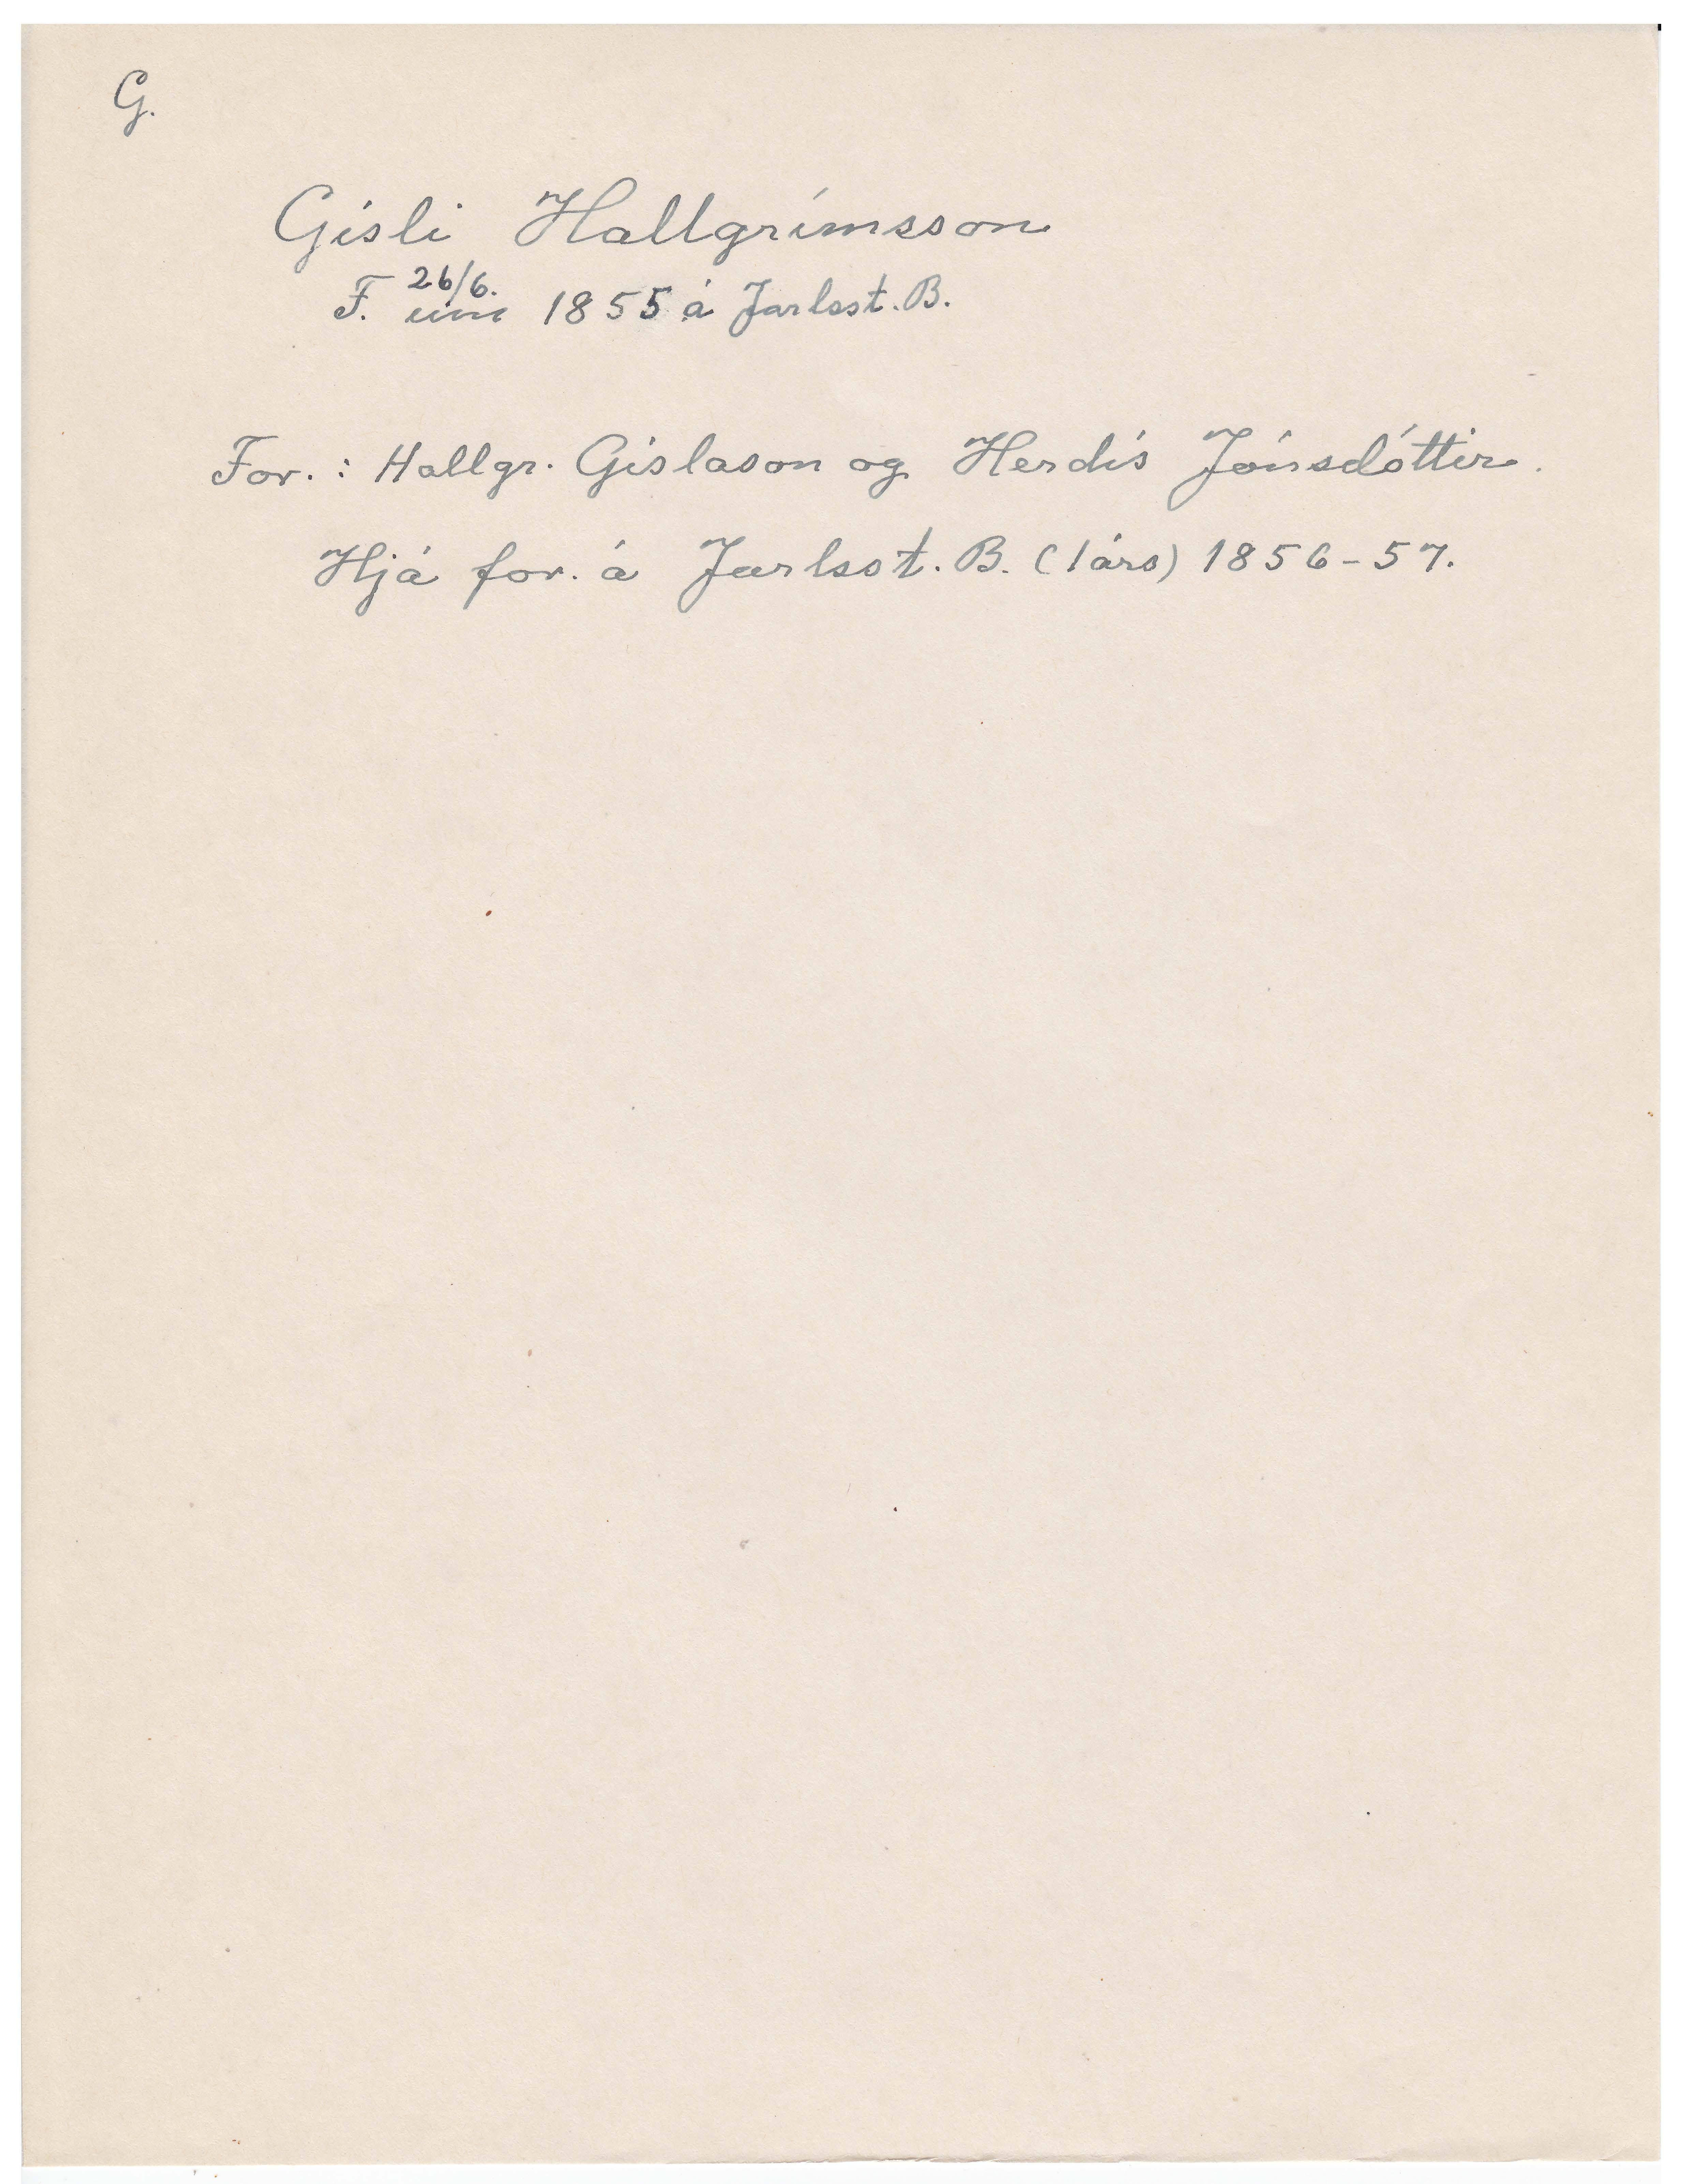 G.
Gísli Hallgrímsson
26/6.
F. um 1855 á Jarlsst. B.
For.: Hallgr. Gíslason og Herdís Jónsdóttir.
Hjá for. á Jarlsst. B. (1árs) 1856-57.